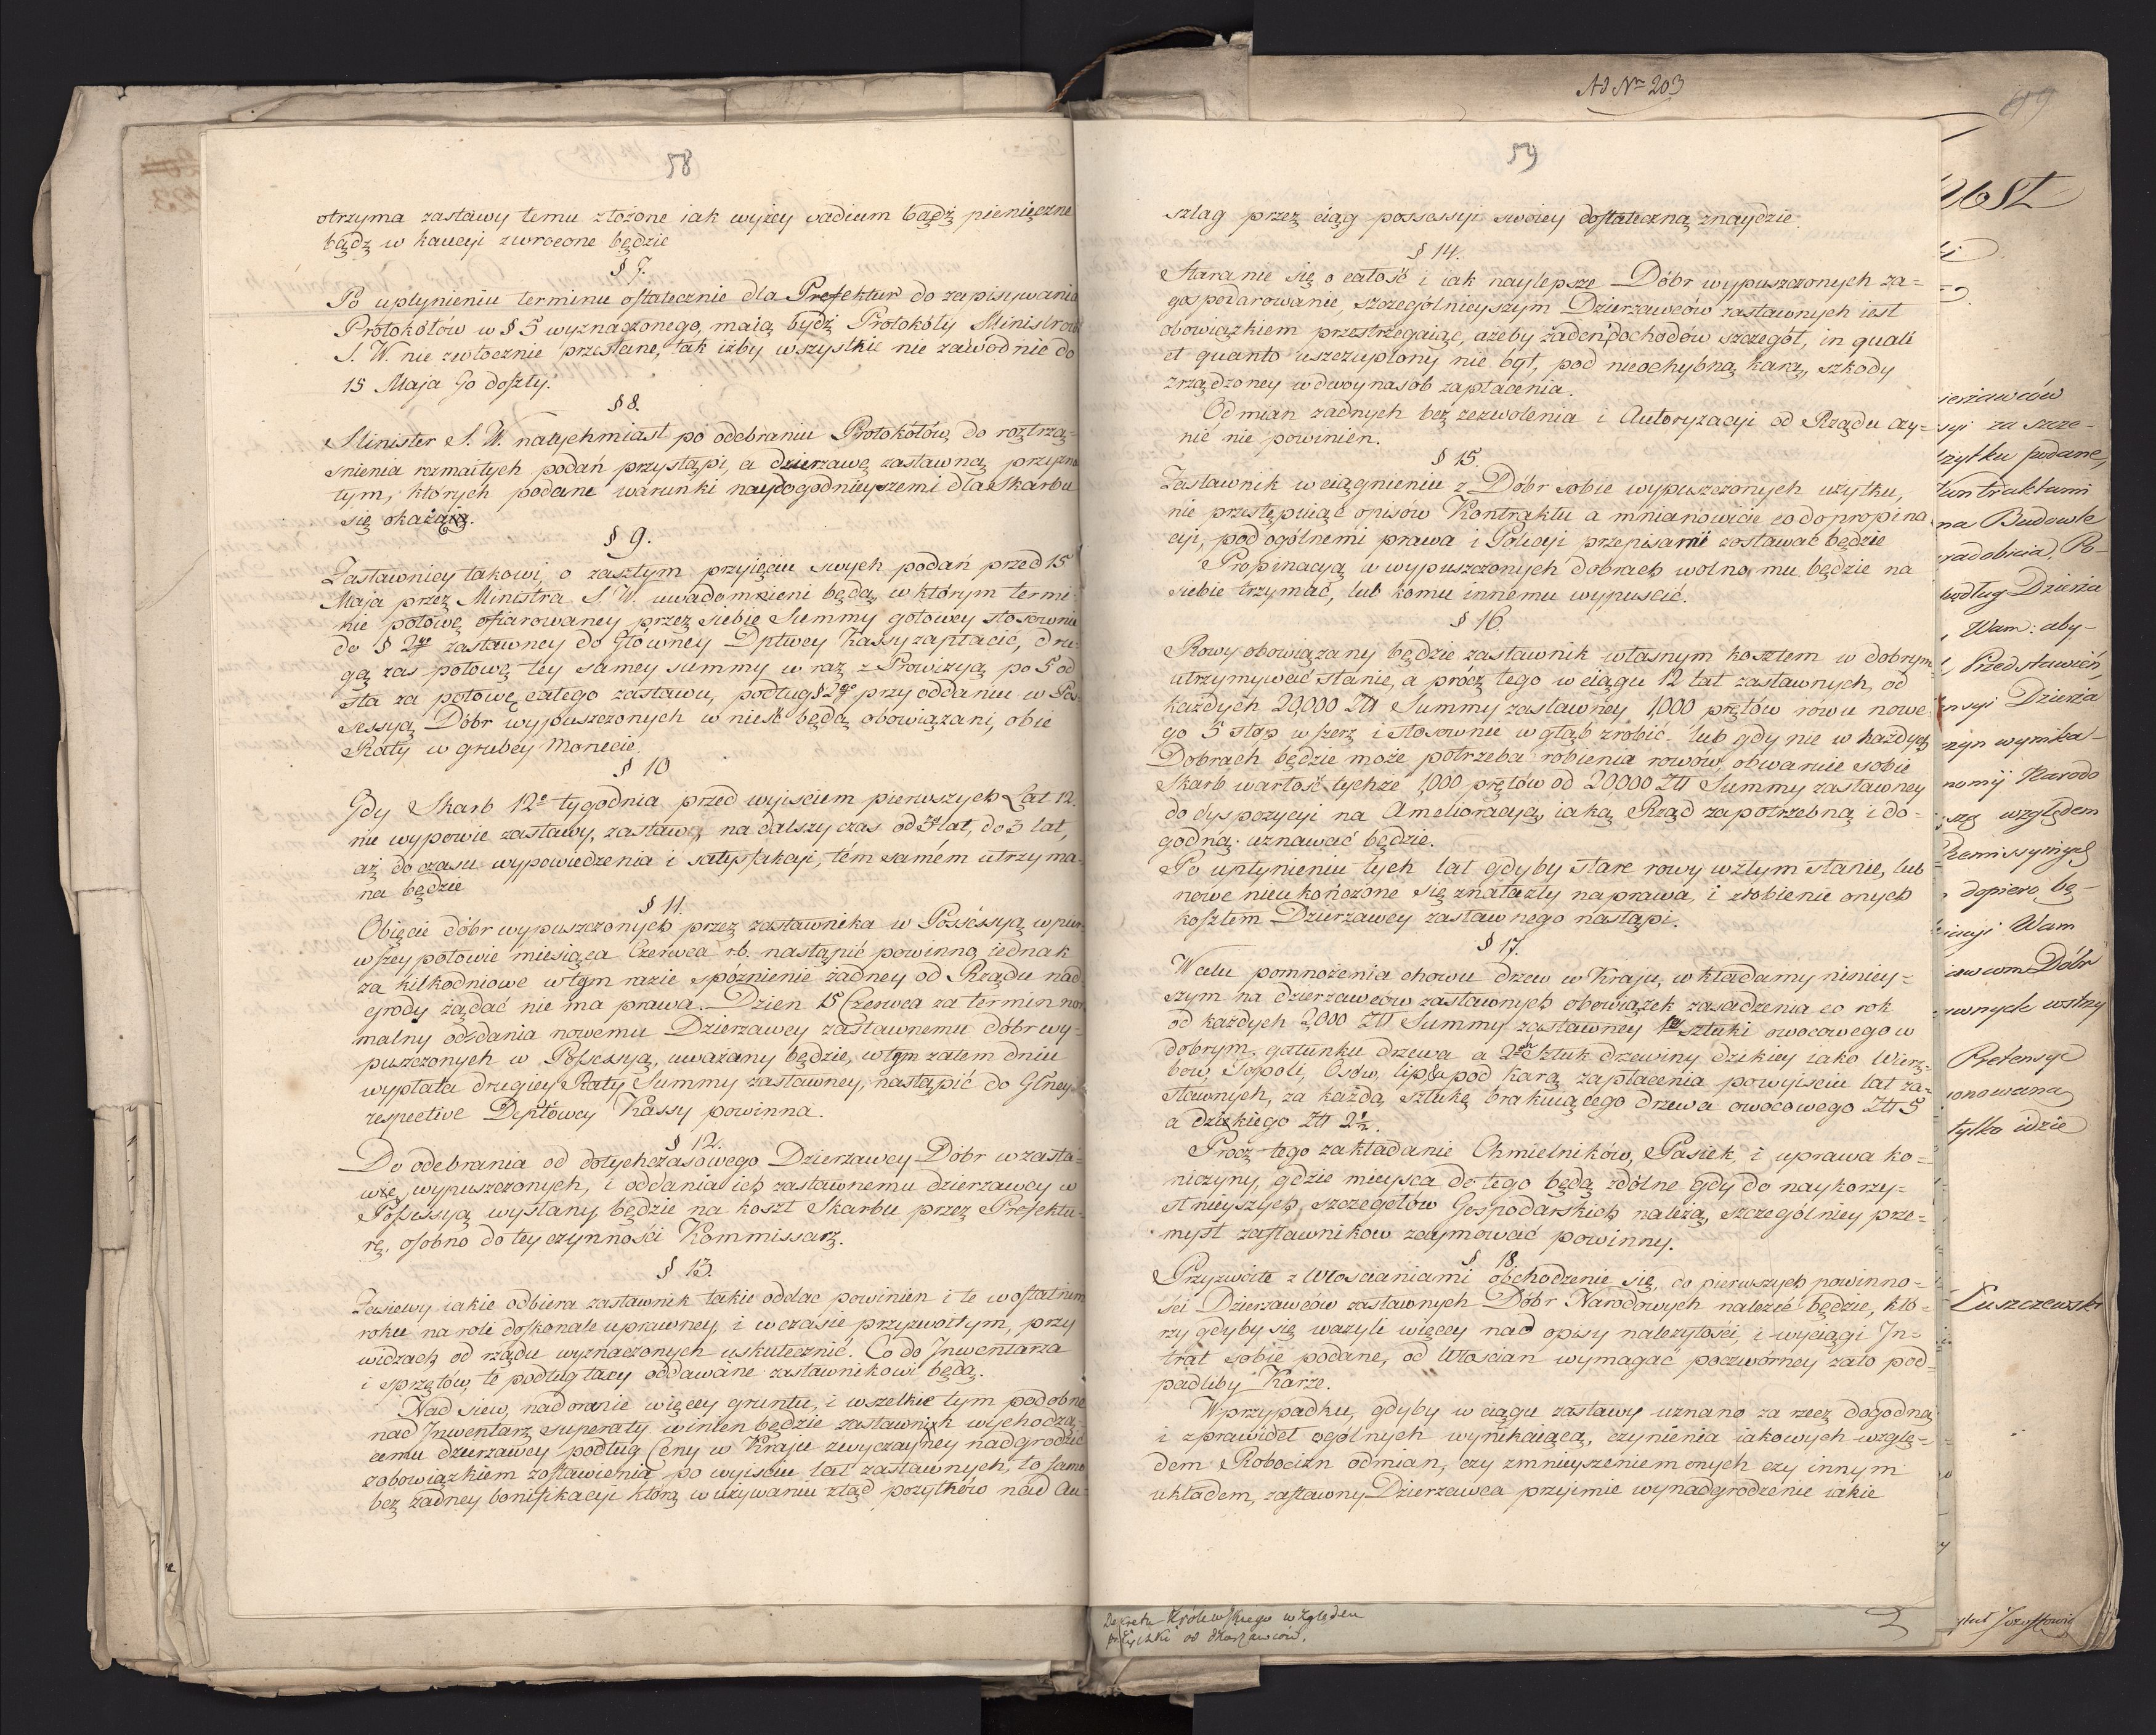 58
otrzyma zastawy temu złożone iak wyżey vadium bądź pieniężne
bądź w kaucyi zwrocone będzie
§ 7.
Po upłynieniu terminu ostatecznie dla Prefektur do zapisywania
Protokółów w § 5 wyznaczonego, maią bydź Protokóły Ministrowi
S. W. nie zwłocznie przesłane, tak iżby wszystkie nie zawodnie do
15 Maja go doszły.
§ 8.
Minister S. W. natychmiast po odebraniu Protokółów do roztrzą-
śnienia rozmaitych podań przystąpi, a dzierzawę zastawną przyzna
tym, których podane warunki naydogodnieyszemi dla Skarbu
się okażaią.
§ 9.
Zastawnicy takowi, o zaszłym przyięciu swych podań przed 15
Maja przez Ministra S. W. uwiadomnieni będą, w którym termi-
nie połowę ofiarowaney przez siebie Summy gotowey stosownie
do § 2go zastawney do Główney Dptwey Kassy zapłacić, dru-
gą zas połowę tey samey summy w raz z Prowizyą po 5 od
sta za połowę całego zastawu, podług § 2go przy oddaniu w Pos-
sessyą Dóbr wypuszczonych w nieść będą obowiązani, obie
Raty w grubey monecie.
§ 10
Gdy Skarb 12o tygodnia przed wyjściem pierwszych Lat 12.
nie wypowie zastawy, zastaw, na dalszy czas od 3 lat, do 3 lat,
aż do czasu wypowiedzenia i satysfakcyi, tém samém utrzyma-
na będzie
§ 11.
Obięcie dóbr wypuszczonych przez zastawnika w Possessyą w pier-
wszey połowie miesiąca Czerwca rb. nastąpić powinno, iednak
za kilkodniowe w tym razie spóznienie żadney od Rządu nad-
grody żądać nie ma prawa. Dzien 15 Czerwca za termin nor-
malny oddania nowemu Dzierzawcy zastawnemu dóbr wy-
puszczonych w Possessyą, uważany będzie, w tym zatem dniu
wypłata drugiey Raty Summy zastawney, nastąpić do Głney
respective Deptowey Kassy powinna.
§ 12.
Do odebrania od dotychczasowego Dzierzawcy Dóbr w zasta-
wie, wypuszczonych, i oddania ich zastawnemu dzierzawcy w
Possessyą wysłany będzie na koszt Skarbu przez Prefektu-
rę, osobno do tey czynności Kommissarz.
§ 13.
Zasiewy iakie odbiera zastawnik takie oddac powinien i te w ostatnim
roku na roli doskonale uprawney, i w czasie przyzwoitym, przy
widzach od rządu wyznaczonych uskutecznić. Co do Inwentarza
i sprzętów, te podług taxy oddawane zastawnikowi będą.
Nad siew, nad oranie więcey gruntu, i wszelkie tym podobne
nad Inwentarz superaty winien będzie zastawnik wychodzą-
cemu dzierzawcy podług Ceny w Kraju zwyczayney nadgrodzić
z obowiązkiem zostawienia, po wyjściu lat zastawnych, to samo
bez żadney bonifikacyi którą w używaniu ztąd pożytków nad an-
Ad Nm 203
59
szlag przez ciąg possessyi swoiey dostateczną znaydzie.
§ 14.
Staranie się o całość i iak naylepsze Dóbr wypuszczonych za-
gospodarowanie, szczególnieyszym Dzierzawców zastawnych iest
obowiązkiem przestrzegaiąc, ażeby żaden dochodów szczegół, in quali
et quanto uszczuplony nie był, pod nieochybną karą, szkody
zrządzoney w dwoynasob zapłacenia.
Odmian żadnych bez zezwolenia i Autoryzacyi od Rządu czy-
nić nie powinien.
§ 15.
Zastawnik w ciągnieniu z Dóbr sobie wypuszczonych użytku,
nie przestępuiąc opisow Kontraktu a mnianowicie co do propina
cyi, pod ogólnemi prawa i Policyi przepisami zostawać będzie
Propinacyą w wypuszczonych dobrach wolno mu będzie na
siebie trzymać, lub komu innemu wypuscić.
§ 16.
Rowy obowiązany będzie zastawnik własnym kosztem w dobrym
utrzymywać stanie, a prócz tego w ciągu 12 lat zastawnych, od
każdych 20,000 Złł Summy zastawney 1,000 prętów rówu nowe-
go 5 stop w szerz i stosownie w głąb zrobić. lub gdy nie w każdych
Dobrach będzie może potrzeba robienia rowów, obwaruie sobie
Skarb wartość tychże 1,000 prętów od 20000 Złł Summy zastawney
do dyspozycyi na Ameliioracyą, iaką Rząd za potrzebną i do-
godną uznawać będzie.
Po upłynieniu tych lat gdyby stare rowy w złym stanie, lub
nowe nieukończone się znalazły naprawa, i zrobienie onych
kosztem Dzierzawcy zastawnego nastąpi.
§ 17.
W celu pomnożenia chowu drzew w Kraju, wkładamy niniey-
szym na dzierzawców zastawnych obowiązek zasadzenia co rok
od każdych 2,000 Złł Summy zastawney 1ey sztuki owocowego w
dobrym gatunku drzewa a 2ch Sztuk drzewiny dzikiey iako Wierz-
bow, Topoli, Osow, lip & pod karą zapłacenia po wyjsciu lat za-
stawnych, za każdą sztukę brakuiącego drzewa owocowego Złł 5
a dzikiego Złł 2½.
Prócz tego zakładanie Chmielników, Pasiek, i uprawa ko-
niczyny, gdzie mieysca do tego będą zdólne gdy do naykorzy-
stnieyszych szczegółów Gospodarskich należą, szczególniey prze-
mysł zastawnikow zaymować powinny.
§ 18.
Przyzwoite z Włościanami obchodzenie się, do pierwszych powinno-
sci Dzierzawców zastawnych Dóbr Narodowych należeć będzie, któ-
rzy gdyby się ważyli więcey nad opisy należytości, i wyciągi In-
trat sobie podane, od Włościan wymagać poczwórney zato pod-
padliby Karze.
W przypadku, gdyby w ciągu zastawy uznano za rzecz dogodną
i z prawideł ogólnych wynikaiącą, czynienia iakowych wzglę-
dem Robocizn odmian, czy zmnieyszeniem onych czy innym
układem, zastawny Dzierzawca przyimie wynadgrodzenie iakie
Dekretu Królewskiego względem
pożyczki od dzierżawców.
ierzawców
syi za szcze-
żytku podane,
Kontraktami
na Budowle
Po-
według Dzieria
Wam: aby-
Przedstawień,
ensyi Dzierza
wynika-
nomij Narodo
względem
dopiero bę-
Wam
Dóbr
Pretensye
onowana
tylko idzie
Łuszczewski